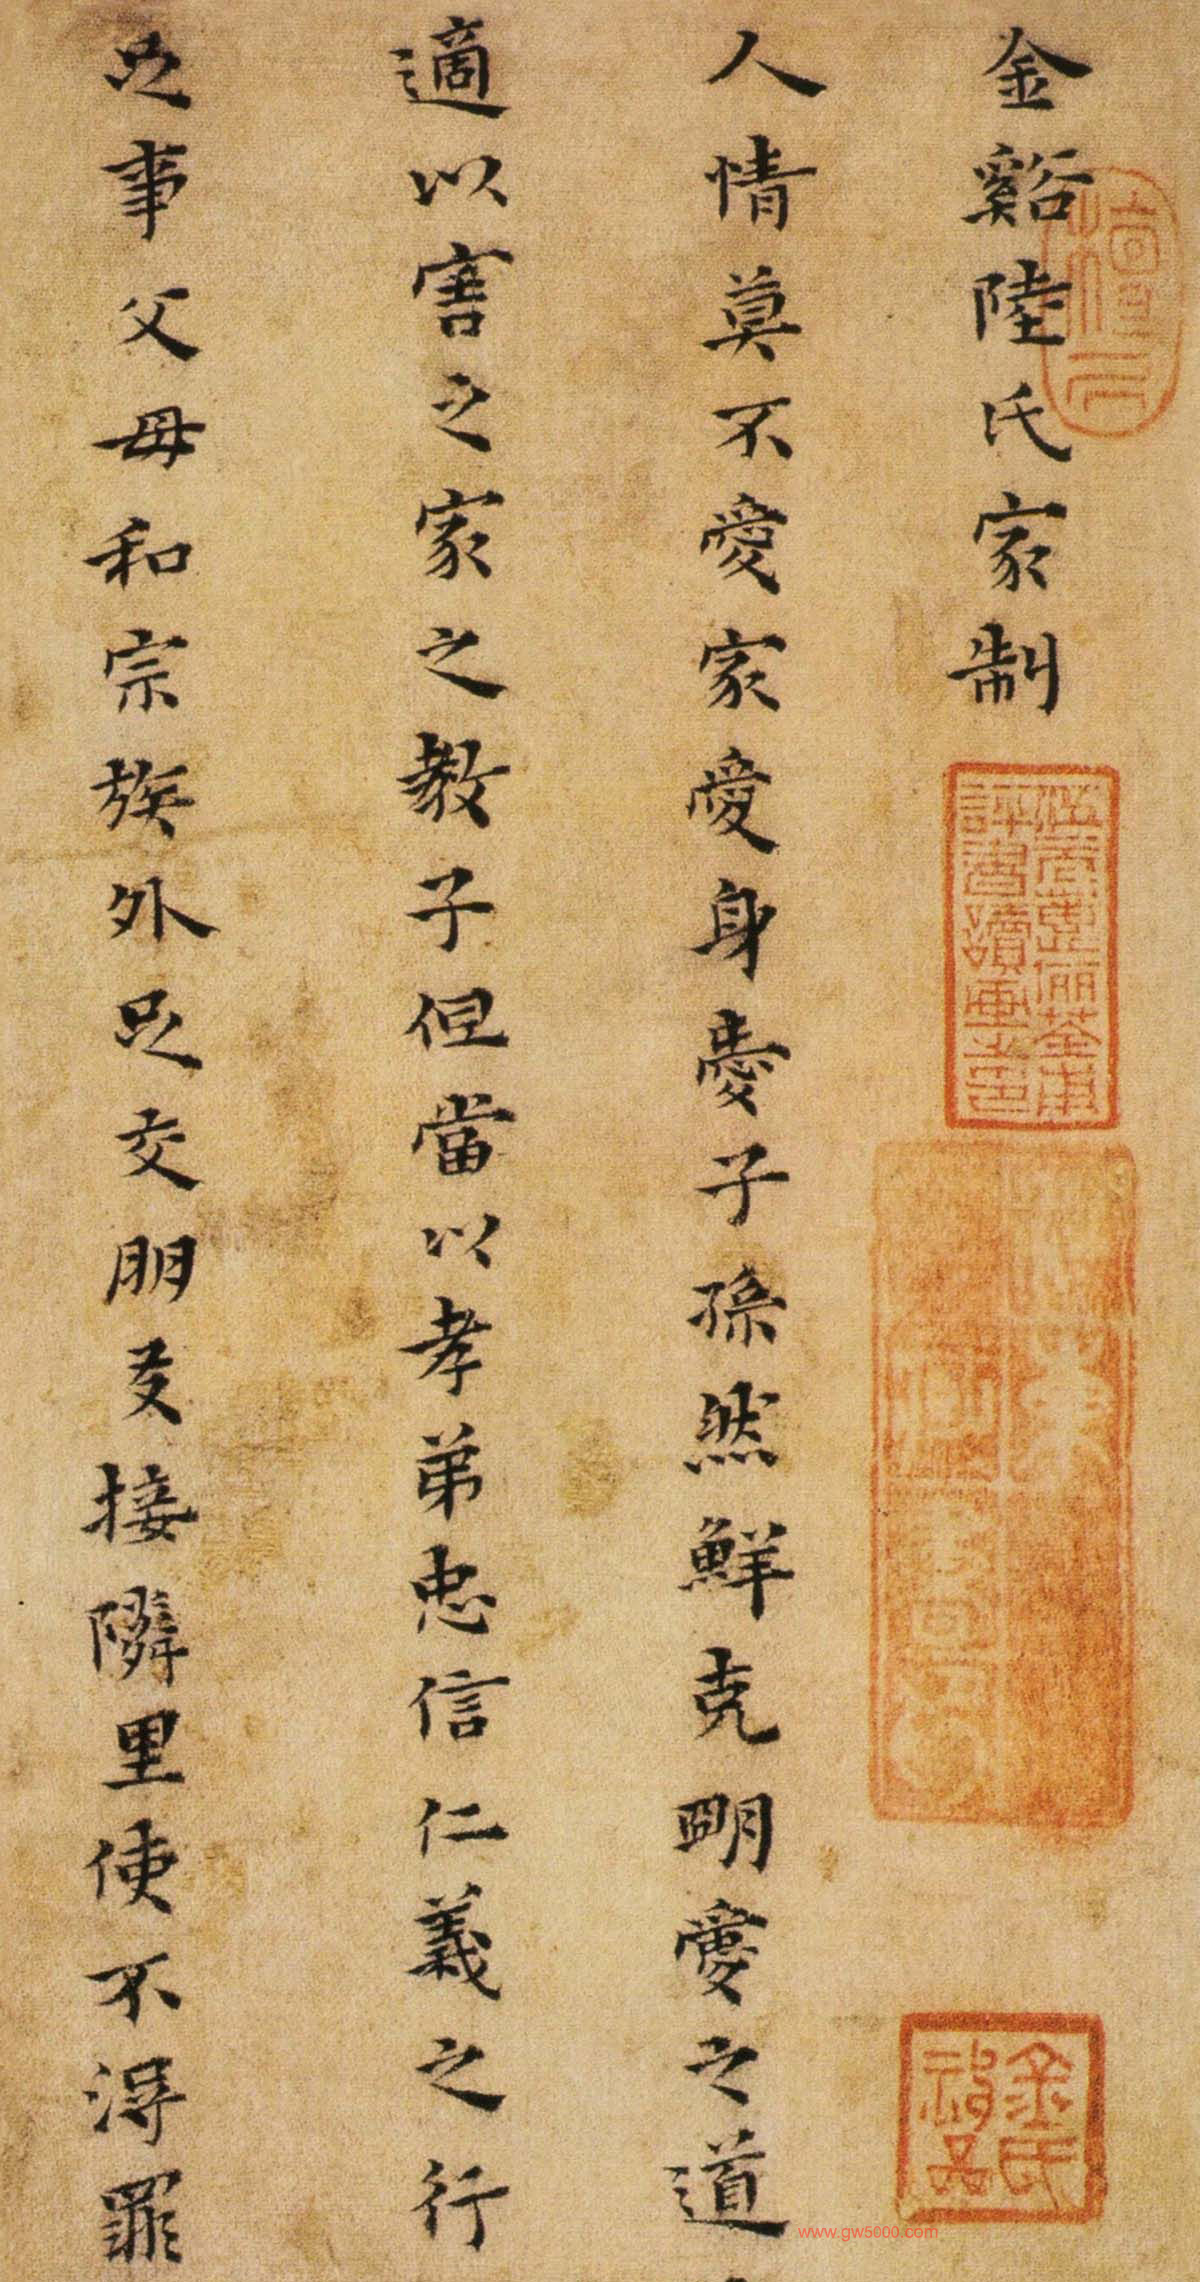 金谿陸氏家制
評書讀畫之印
金氏
人情莫不愛家愛身愛子孫然鮮克明愛之道
適以害之家之教子但當以孝弟忠信仁義之行
足事父母和宗族外足交朋友接隣里使不得罪
www.gw5000.com